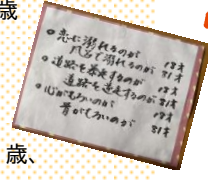 歳
○恋に溺れるのが 18才
風呂で溺れるのが 81才
○道路を暴走するのが 18才
道路を逆走するのが 81才
○心がもろいのが 18才
骨がもろいのが 81才
歳、